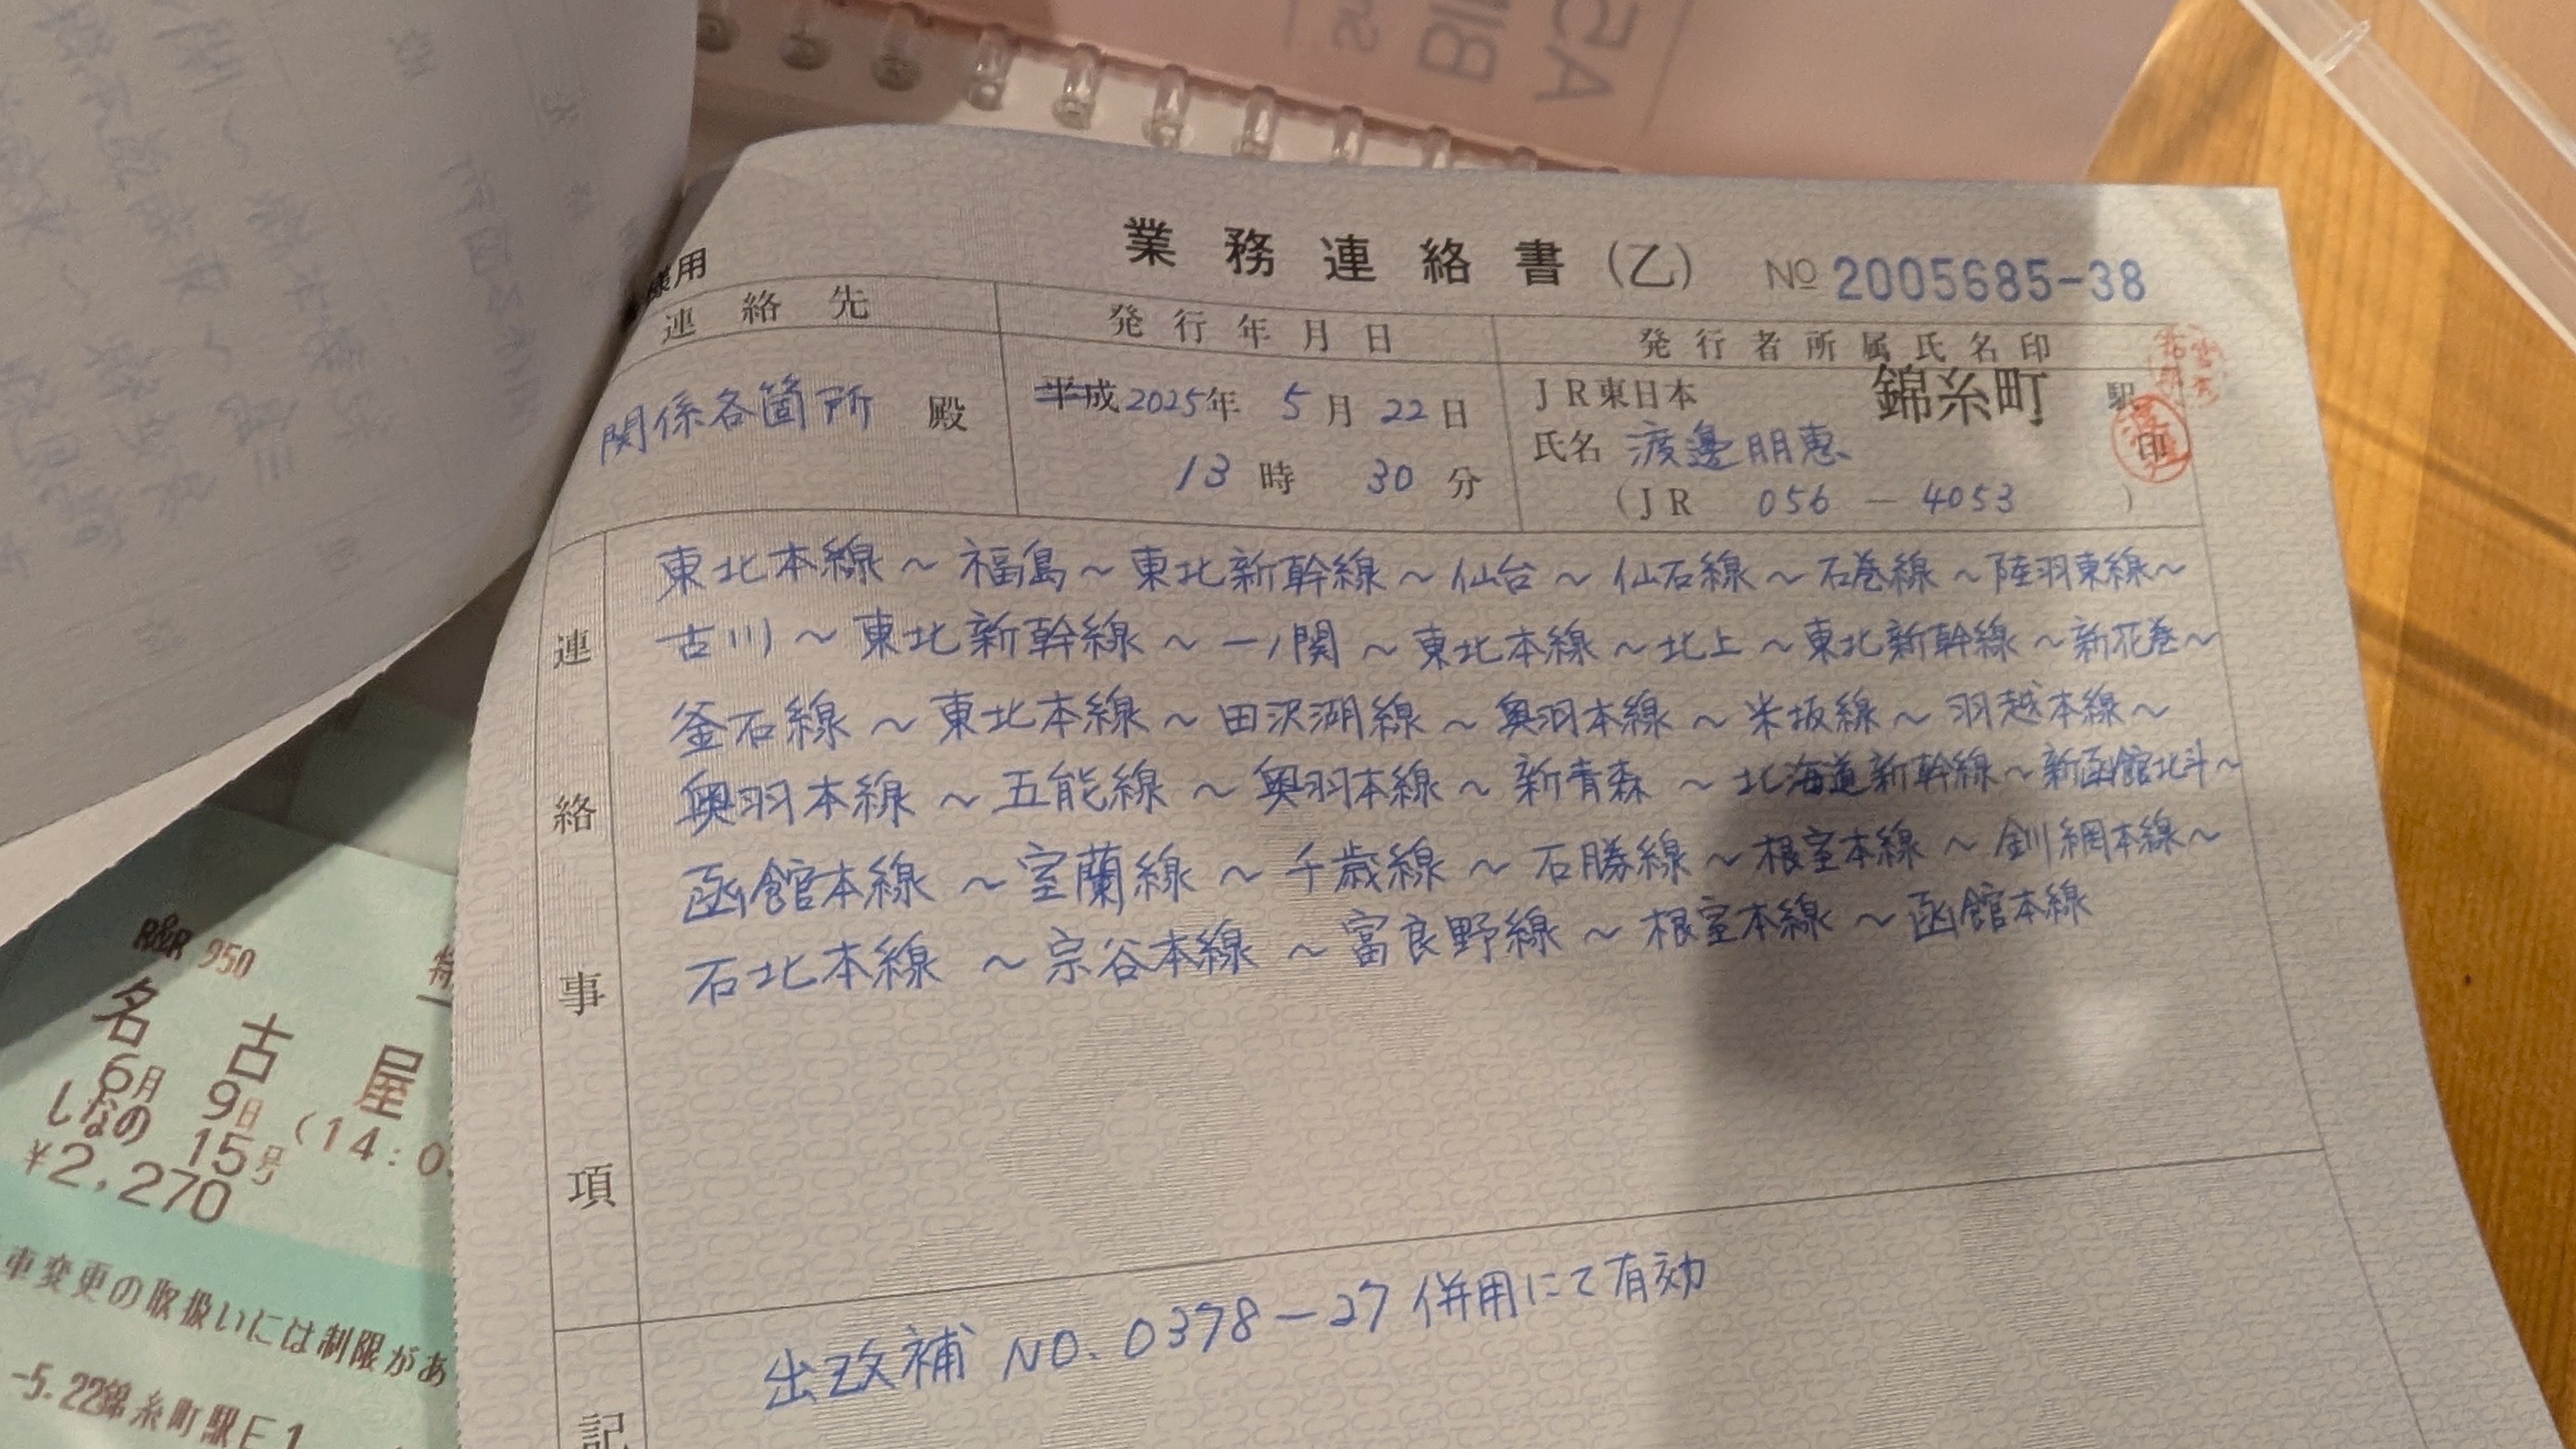 業務連絡書(乙) № 2005685-38
様用
連絡先
発行年月日
発行者所属氏名印
関係各箇所 殿
平成 2025年 5月 22日
13時 30分
JR東日本 錦糸町 駅
氏名 渡邊朋恵 印
(JR 056 - 4053 )
連絡事項
東北本線~福島~東北新幹線~仙台~仙石線~石巻線~陸羽東線~
古川~東北新幹線~一ノ関~東北本線~北上~東北新幹線~新花巻~
釜石線~東北本線~田沢湖線~奥羽本線~米坂線~羽越本線~
奥羽本線~五能線~奥羽本線~新青森~北海道新幹線~新函館北斗~
函館本線~室蘭線~千歳線~石勝線~根室本線~釧網本線~
石北本線~宗谷本線~富良野線~根室本線~函館本線
記
出改補 NO. 0378-27 併用にて有効
R&R 950
名古屋
6月 9日 (14:0
しなの 15号
¥2,270
車変更の取扱いには制限があ
-5.22錦糸町駅E1
A5
BIN